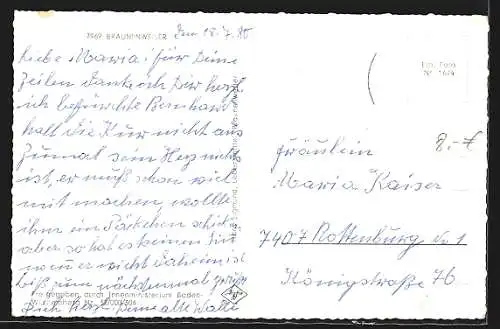 7969 BRAUNENWEILER
Den 18.7.80
Liebe Maria! für Deine
Zeilen danke ich Dir herzl.
ich befürchte Bernhard
hält die Kur nicht aus
Zumal sein Herz nicht
ist, er muß schon viel
mit machen, wollte
ihm ein Päckchen schick
aber so hat es keinen Sin
wenn er nicht daheim ist
bis zum nächstenmal grüßt
Dich herzl. Deine alte
Freigegeben durch Innenministerium Baden-
Württemberg Nr.
Fräulein
Maria Kaiser
7407 Rottenburg
Königstraße 76
8.-€